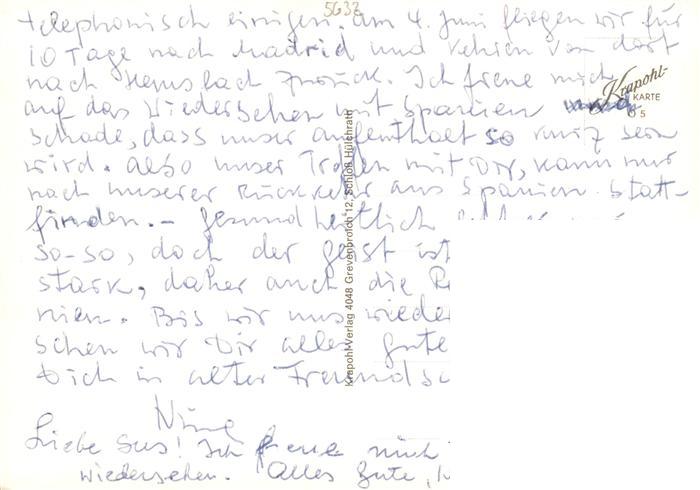 5632
telephonisch einigen. am 4. Juni fliegen wir für
10 Tage nach Madrid und kehren von dort
nach Hemsbach zurück. Ich freue mich
auf das Wiedersehen mit Spanien
schade, dass unser aufenthalt so kurz sein
wird. also unser Treffen mit Dir, kann nur
nach unserer Rückkehr aus Spanien statt-
finden. – gesundheitlich
so-so, doch der geist ist
stark, daher auch die
nien. Bis wir uns wieder
schen wir Dir alles gute
Dich in alter Freundsc
Nina
Liebe Sus! Ich freue mich
wiedersehen. Alles Gute,
Krapohl-
KARTE
Krapohl-Verlag 4048 Grevenbroich 12, Schloß Hülchrath